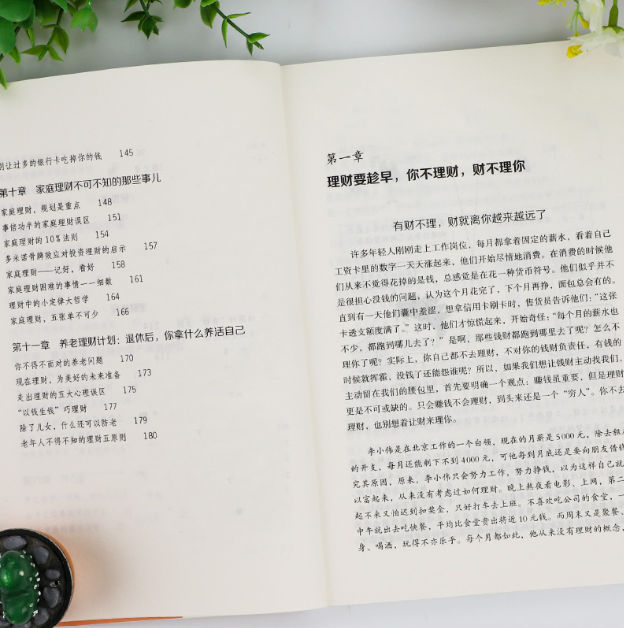 别让过多的银行卡吃掉你的钱 145
第十章 家庭理财不可不知的那些事儿
家庭理财，规划是重点 148
事倍功半的家庭理财误区 151
家庭理财的10%法则 154
多米诺骨牌效应对投资理财的启示 157
家庭理财——记好，看好 158
家庭理财困难的事情一一细数 161
理财中的小定律大哲学 164
家庭理财，五张单不可少 166
第十一章 养老理财计划：退休后，你拿什么养活自己
你不得不面对的养老问题 170
现在理财，为美好的未来准备 173
走出理财的五大心理误区 175
“以钱生钱”巧理财 177
除了儿女，什么还可以防老 179
老年人不得不知的理财五原则 180
第一章
理财要趁早，你不理财，财不理你
有财不理，财就离你越来越远了
许多年轻人刚刚走上工作岗位，每月都拿着固定的薪水，看着自己
工资卡里的数字一天天涨起来，他们开始尽情地消费。在消费的时候他
们从来不觉得花掉的是钱，总感觉是在花一种货币符号。他们似乎并不
是很担心没钱的问题，认为这个月花完了，下个月再挣，面包总会有的。
直到有一天他们囊中羞涩，想拿信用卡刷卡时，售货员告诉他们：“这张
卡透支额度满了。”这时，他们才惊慌起来，开始奇怪：“每个月的薪水也
不少，都跑到哪儿去了？”是啊，那些钱都跑到哪里去了呢？怎么不
理你了呢？实际上，你自己都不去理财，不对你的钱财负责任，有钱的
时候就挥霍，没钱了还能怨谁呢？所以，如果我们想让钱财主动找我们，
主动留在我们的腰包里，首先要明确一个观点：赚钱虽重要，但是理财
更是不可或缺的。只会赚钱不会理财，到头来还是一个“穷人”。你不去
理财，也别想着让财来理你。
李小伟是在北京工作的一个白领，现在的月薪是5000元，除去租
的开支，每月还能剩下不到4000元，可他每到月底还是要向朋友借钱
究其原因，原来，李小伟只会努力工作，努力挣钱，以为这样自己就
以富起来，从来没有考虑过如何理财。晚上熬夜看电影、上网，第二
起不来又怕迟到扣奖金，只好打车去上班。不喜欢吃公司的食堂，一
中午就出去吃快餐，平均比食堂贵出将近10元钱。而周末又是聚餐、
身、喝酒，玩得不亦乐乎。每个月都如此，他从来没有理财的概念，